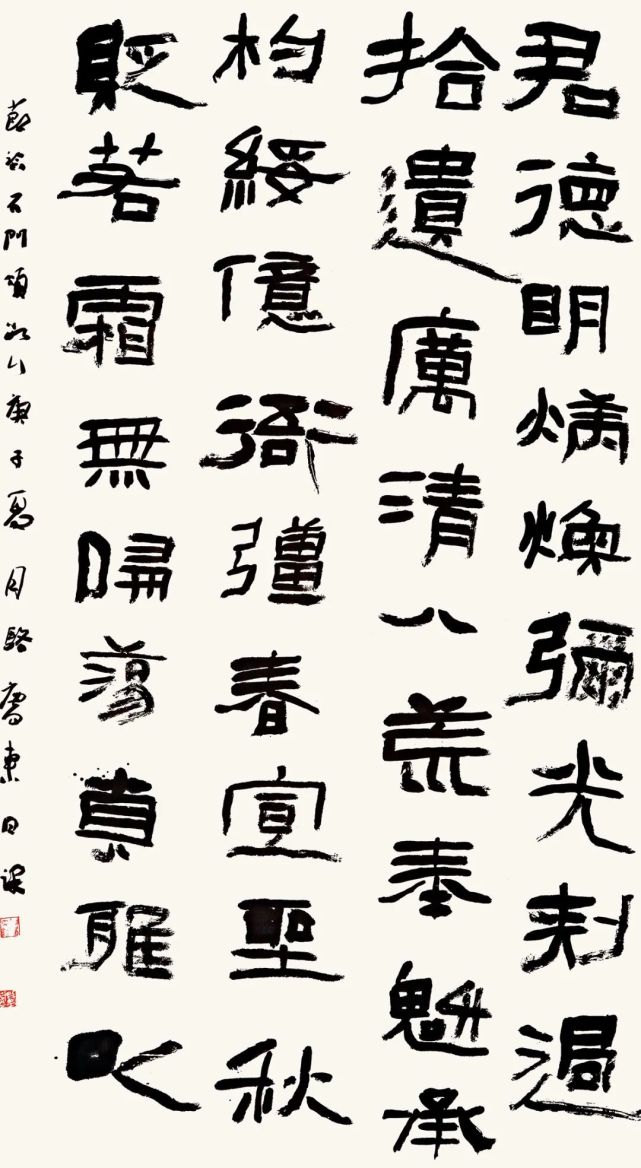 君德明炳煥彌光刺過
拾遺厲清八荒奉魁承
杓綏億衙彊春宣聖秋
貶若霜無偏蕩貞雅以
節臨石門頌 庚子夏月